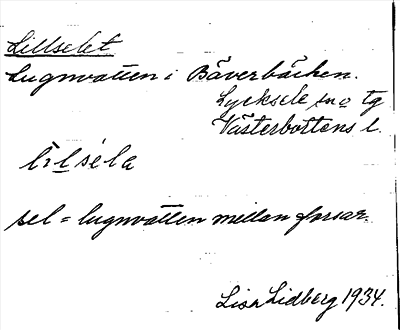 Lillselet
Lugnvatten i Bäverbäcken.
Lycksele sn o tg
Västerbottens l.
lı̄lséla
sel = lugnvatten mellan forsar.
Lisa Lidberg 1934.